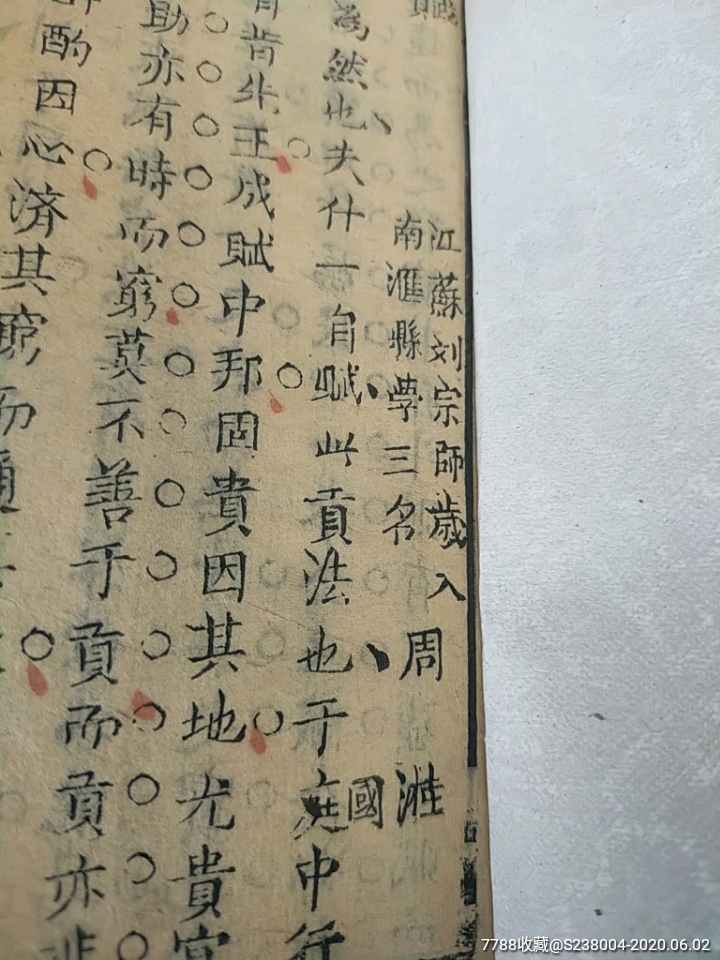 賦
江蘇刘宗師歲入
南滙縣學三名
周
國
為然也夫什一自賦此貢法也于庭中行
昔先王成賦中邦固貴因其地尤貴宜
助亦有時而窮莫不善于貢而貢亦非
酌因心濟其窮而通
7788收藏@S238004-2020.06.02